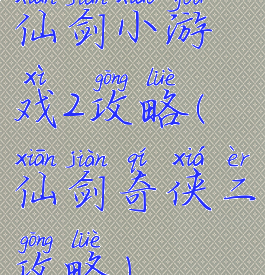 xiān jiàn xiǎo yóu
仙剑小游
xì gōng lüè
戏2攻略(
xiān jiàn qí xiá èr
仙剑奇侠二
gōng lüè
攻略)